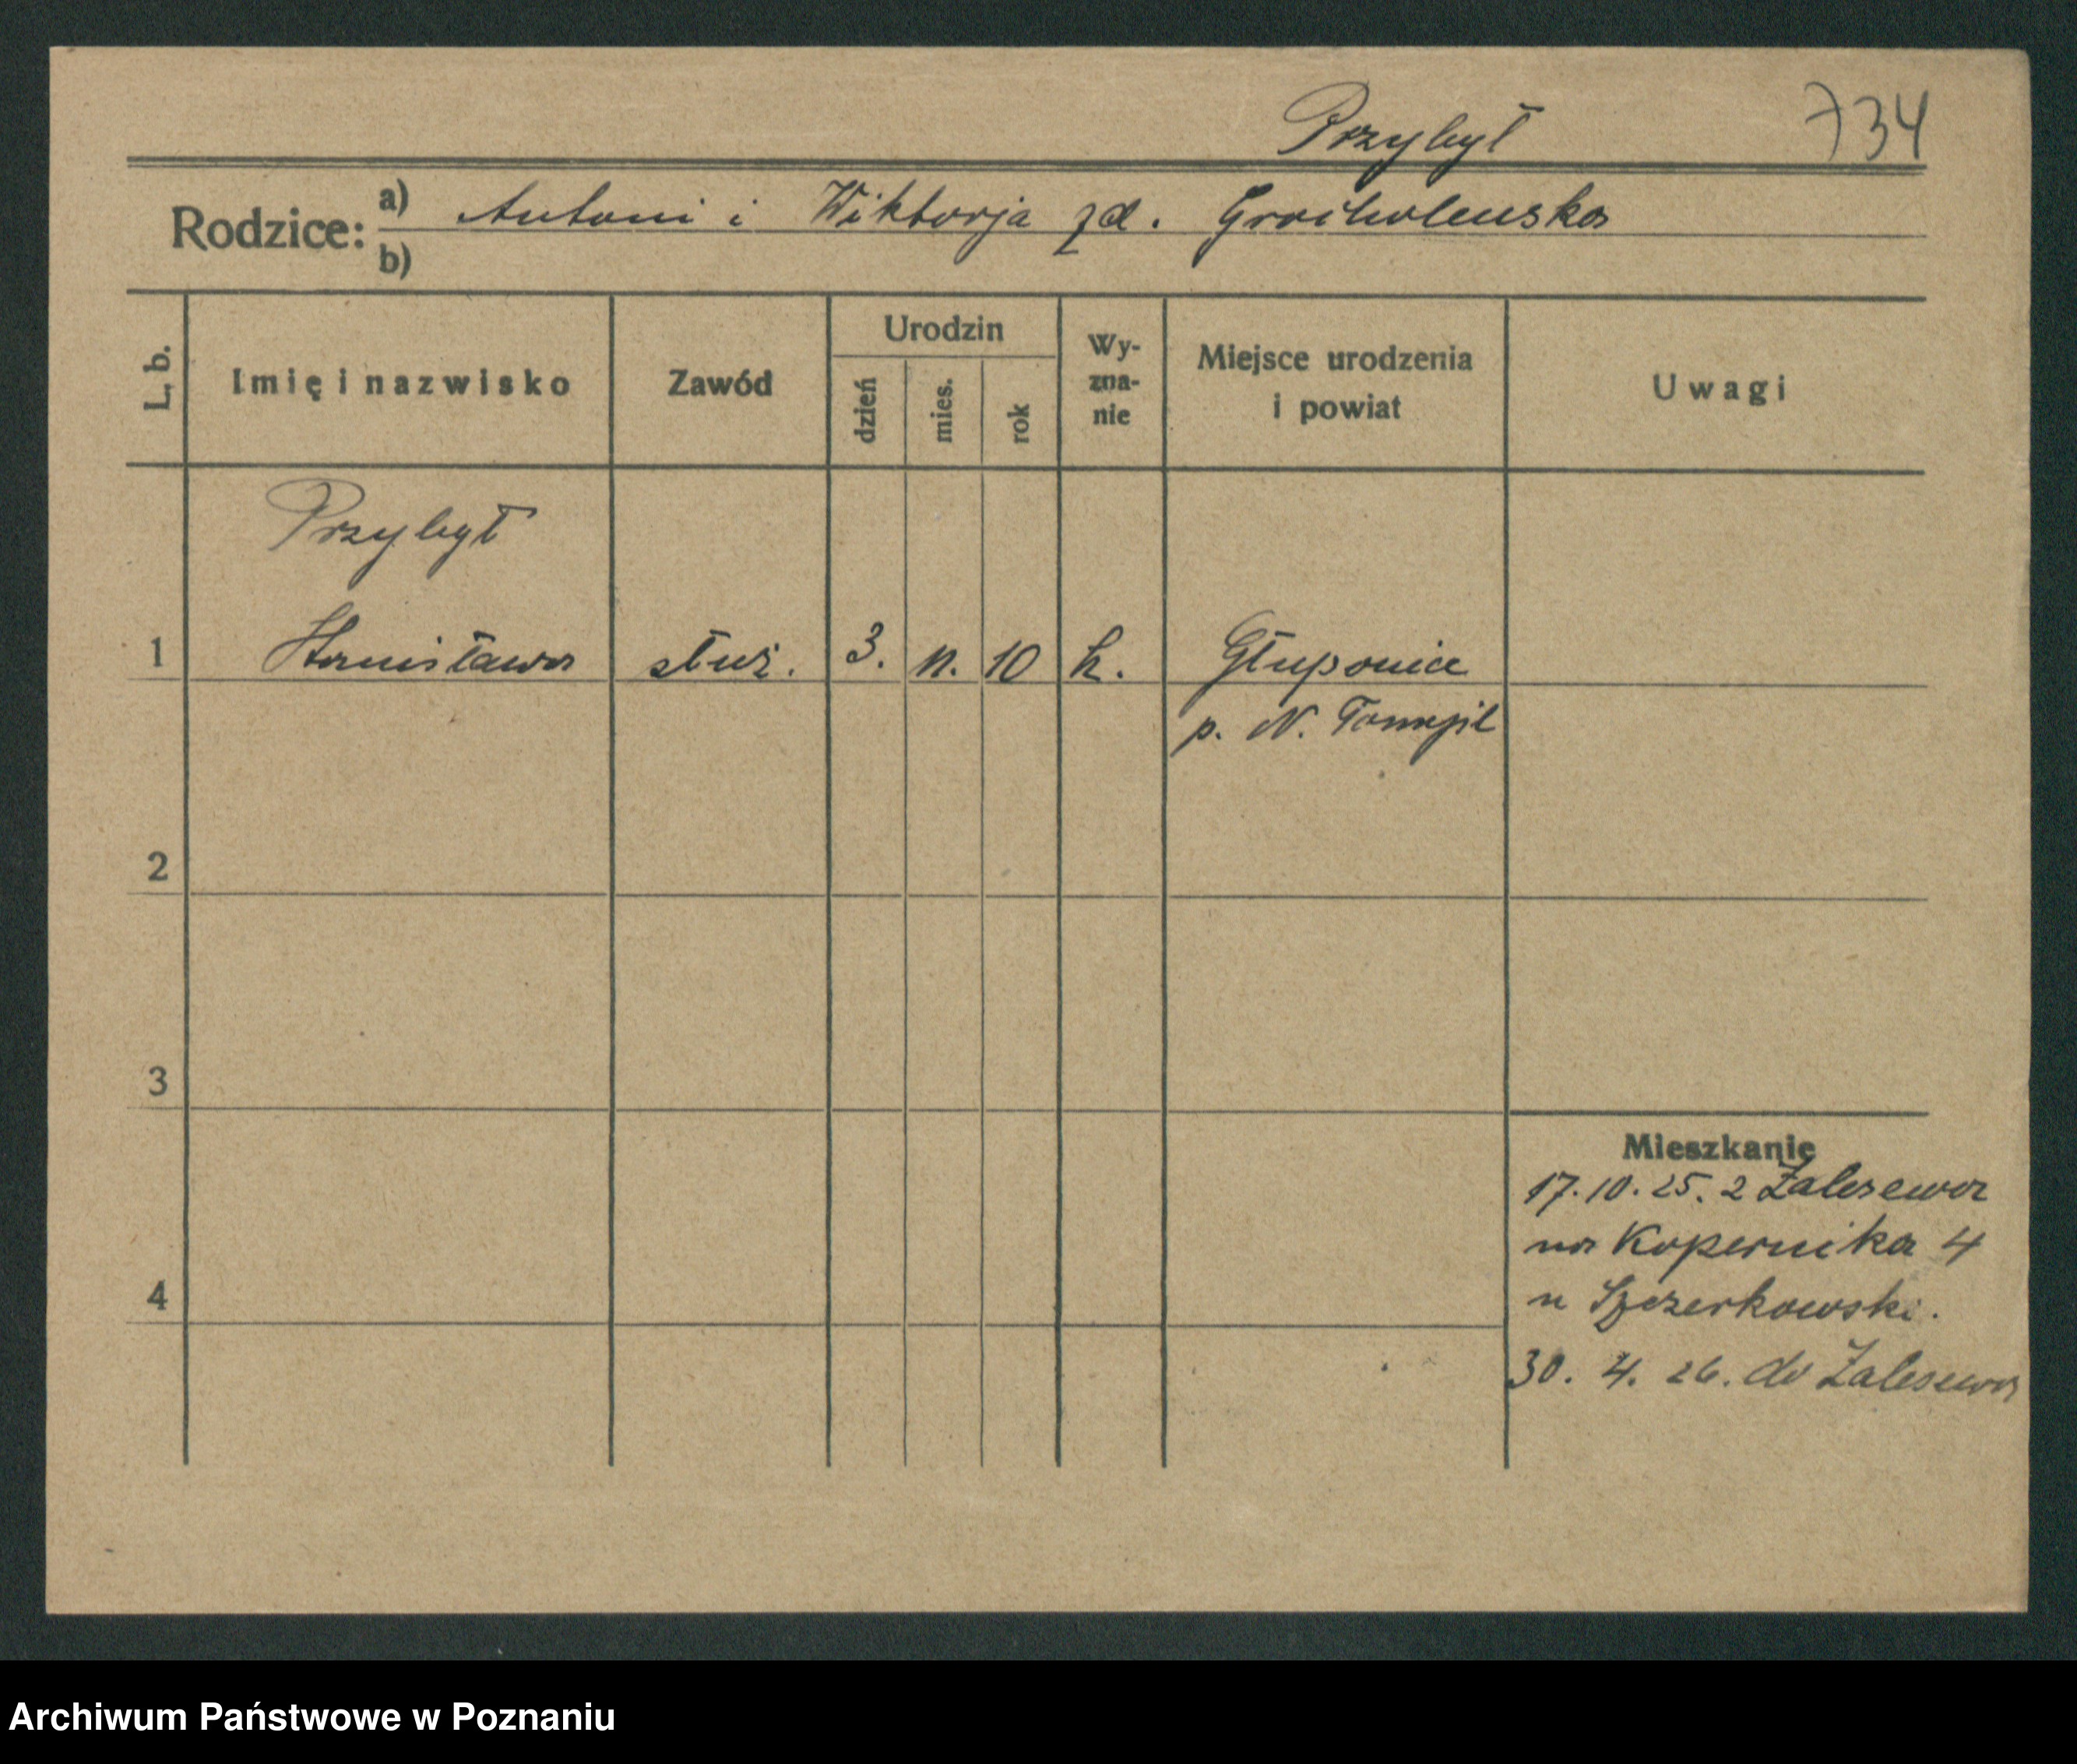 Przybył 734
Rodzice: a) Antoni i Wiktorja zd. Grocholenska
b)
L. b. Imię i nazwisko Zawód Urodzin dzień mies. rok Wy-zna-nie Miejsce urodzenia i powiat Uwagi
Przybył
1 Stanisława służ. 3. 11. 10 k. Głuponice
p. N. Tomyśl
2
3
4
Mieszkanie
17.10.25. z Zalesewa
na Kopernika 4
u Szczerkowski.
30. 4. 26. do Zalesewa
Archiwum Państwowe w Poznaniu